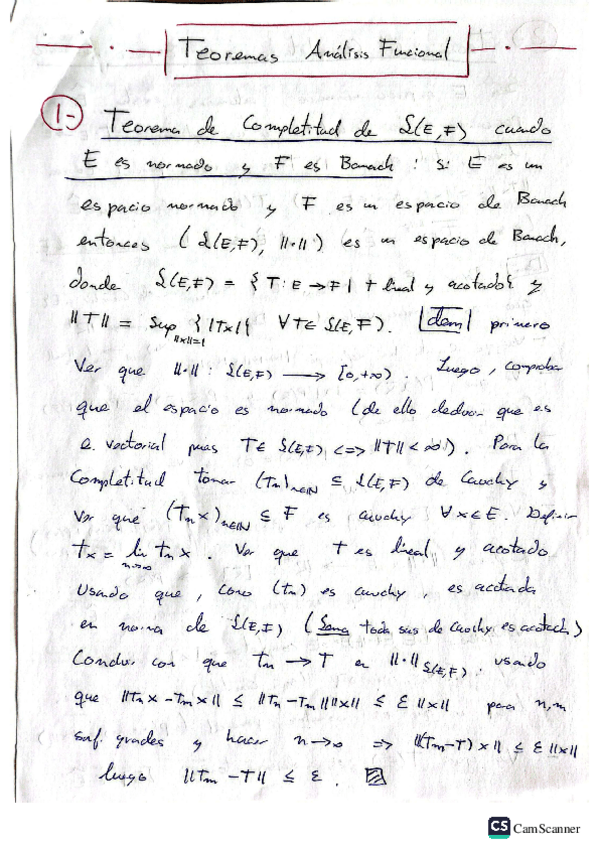 Teoremas Análisis Funcional
1- Teorema de Completitud de L(E,F) cuando
E es normado y F es Banach : Si E es un
espacio normado y F es un espacio de Banach
entonces (L(E,F), ||·||) es un espacio de Banach,
donde L(E,F) = { T: E → F | T lineal y acotado} y
||T|| = Sup ||x||=1 { ||Tx|| } ∀ T ∈ L(E,F). dem primero
Ver que ||·|| : L(E,F) → [0,+∞). Luego, comprobar
que el espacio es normado (de ello deducir que es
e. vectorial pues T ∈ L(E,F) <=> ||T|| < ∞). Para la
Completitud tomar (Tn)n∈IN ⊆ L(E,F) de Cauchy y
ver que (Tnx)n∈IN ⊆ F es cauchy ∀x∈E. Definir
Tx = lim n→∞ Tnx. Ver que T es lineal y acotado
usando que, como (Tn) es cauchy, es acotada
en norma de L(E,F) (toda sus de Cauchy es acotada)
Concluir con que Tn → T en ||·||L(E,F). usando
que ||Tnx - Tmx|| ≤ ||Tn - Tm|| ||x|| ≤ ε ||x|| para n,m
suf. grandes y hacer n→∞ => ||(Tm-T)x|| ≤ ε ||x||
luego ||Tm - T|| ≤ ε.
CS CamScanner